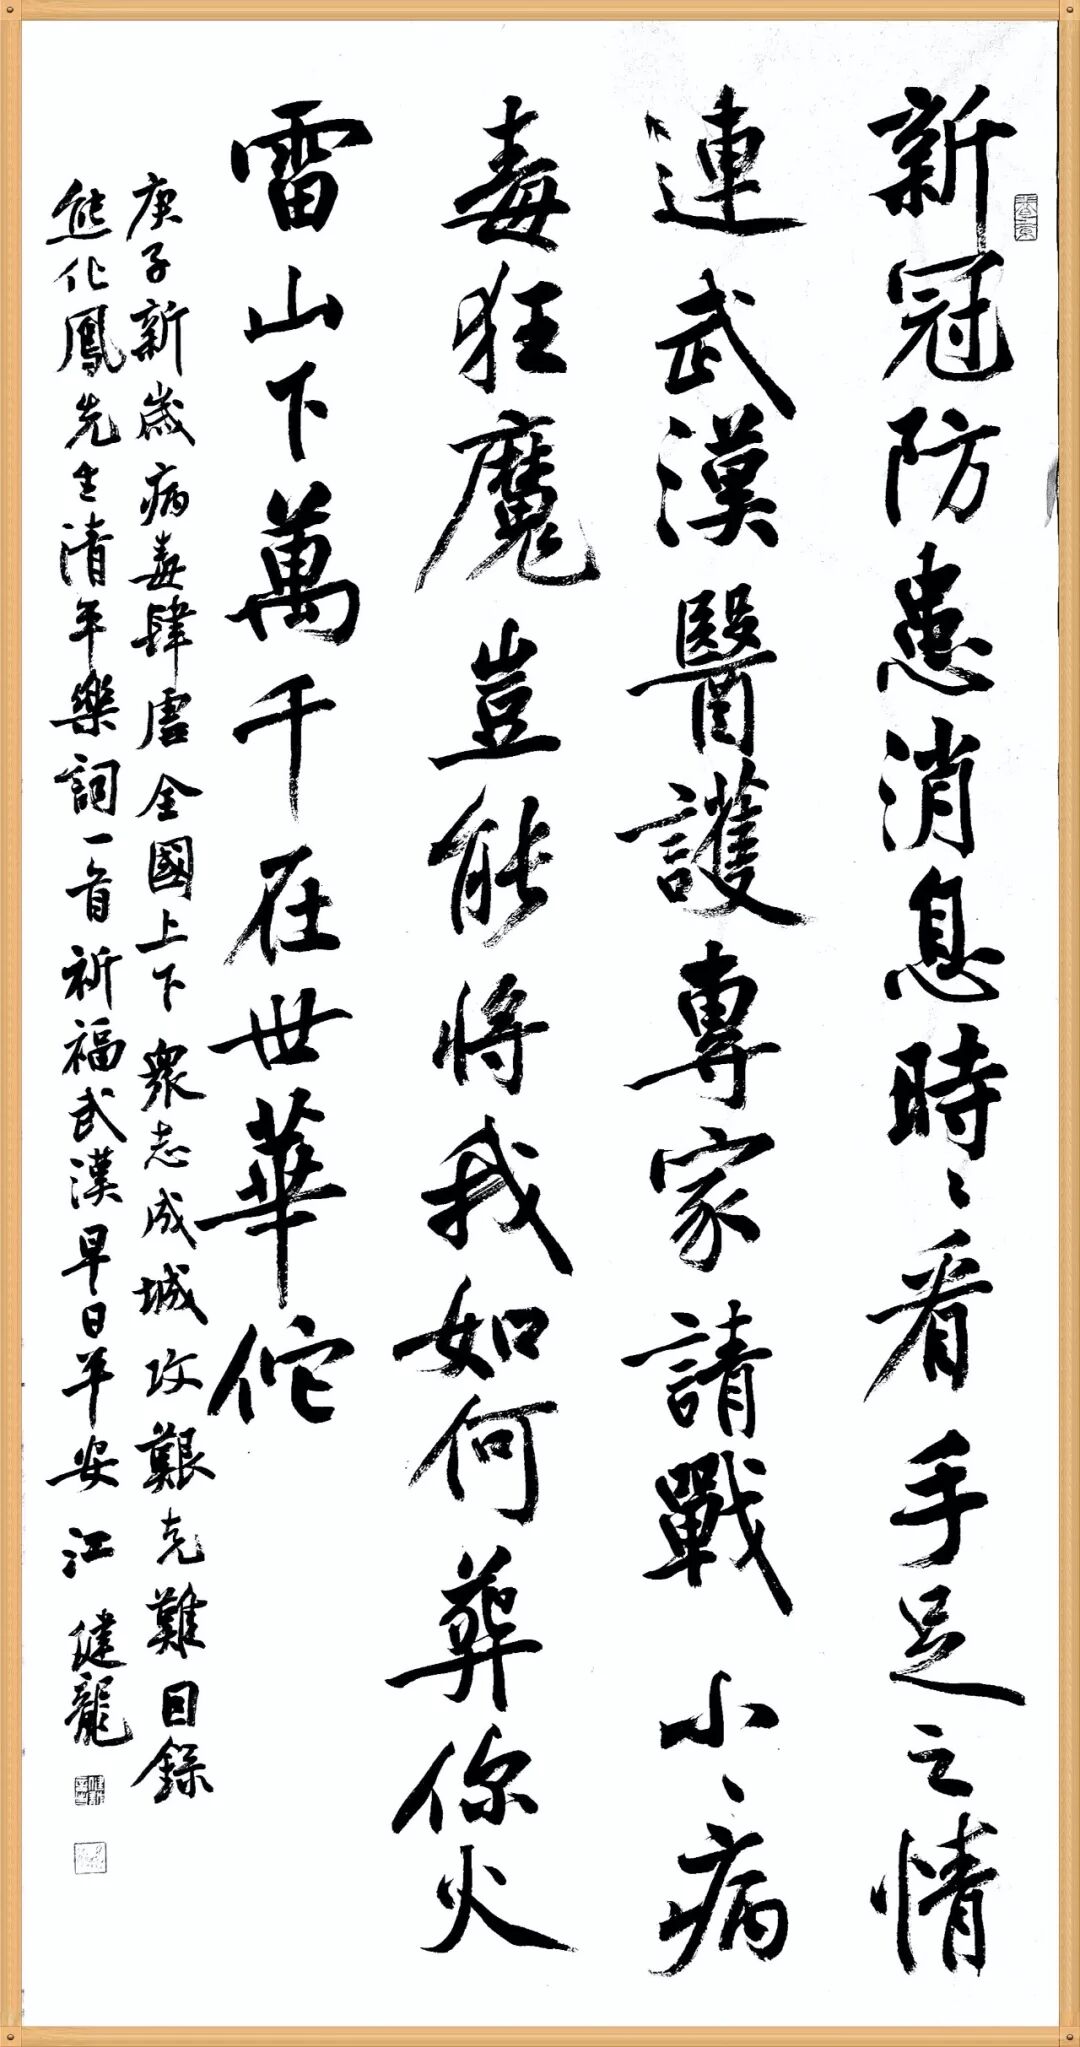 新冠防患消息時〻看手足之情
連武漢醫護專家請戰小〻病
毒狂魔豈能將我如何葬你火
雷山下萬千在世華佗
庚子新歲病毒肆虐全國上下衆志成城攻艱克難因錄
熊化鳳先生清平樂詞一首祈福武漢早日平安 江健龍